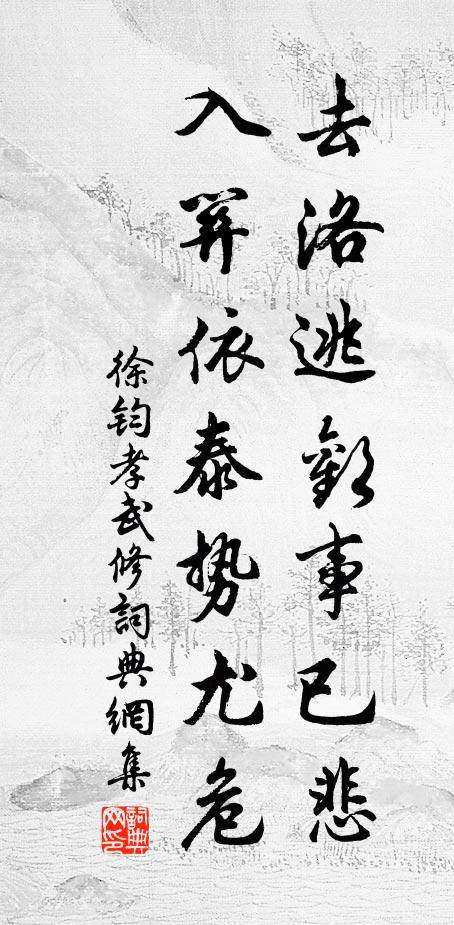 去洛逃歡事已悲
入關依泰勢尤危
徐鈞孝武修詞典網集
詞典网印